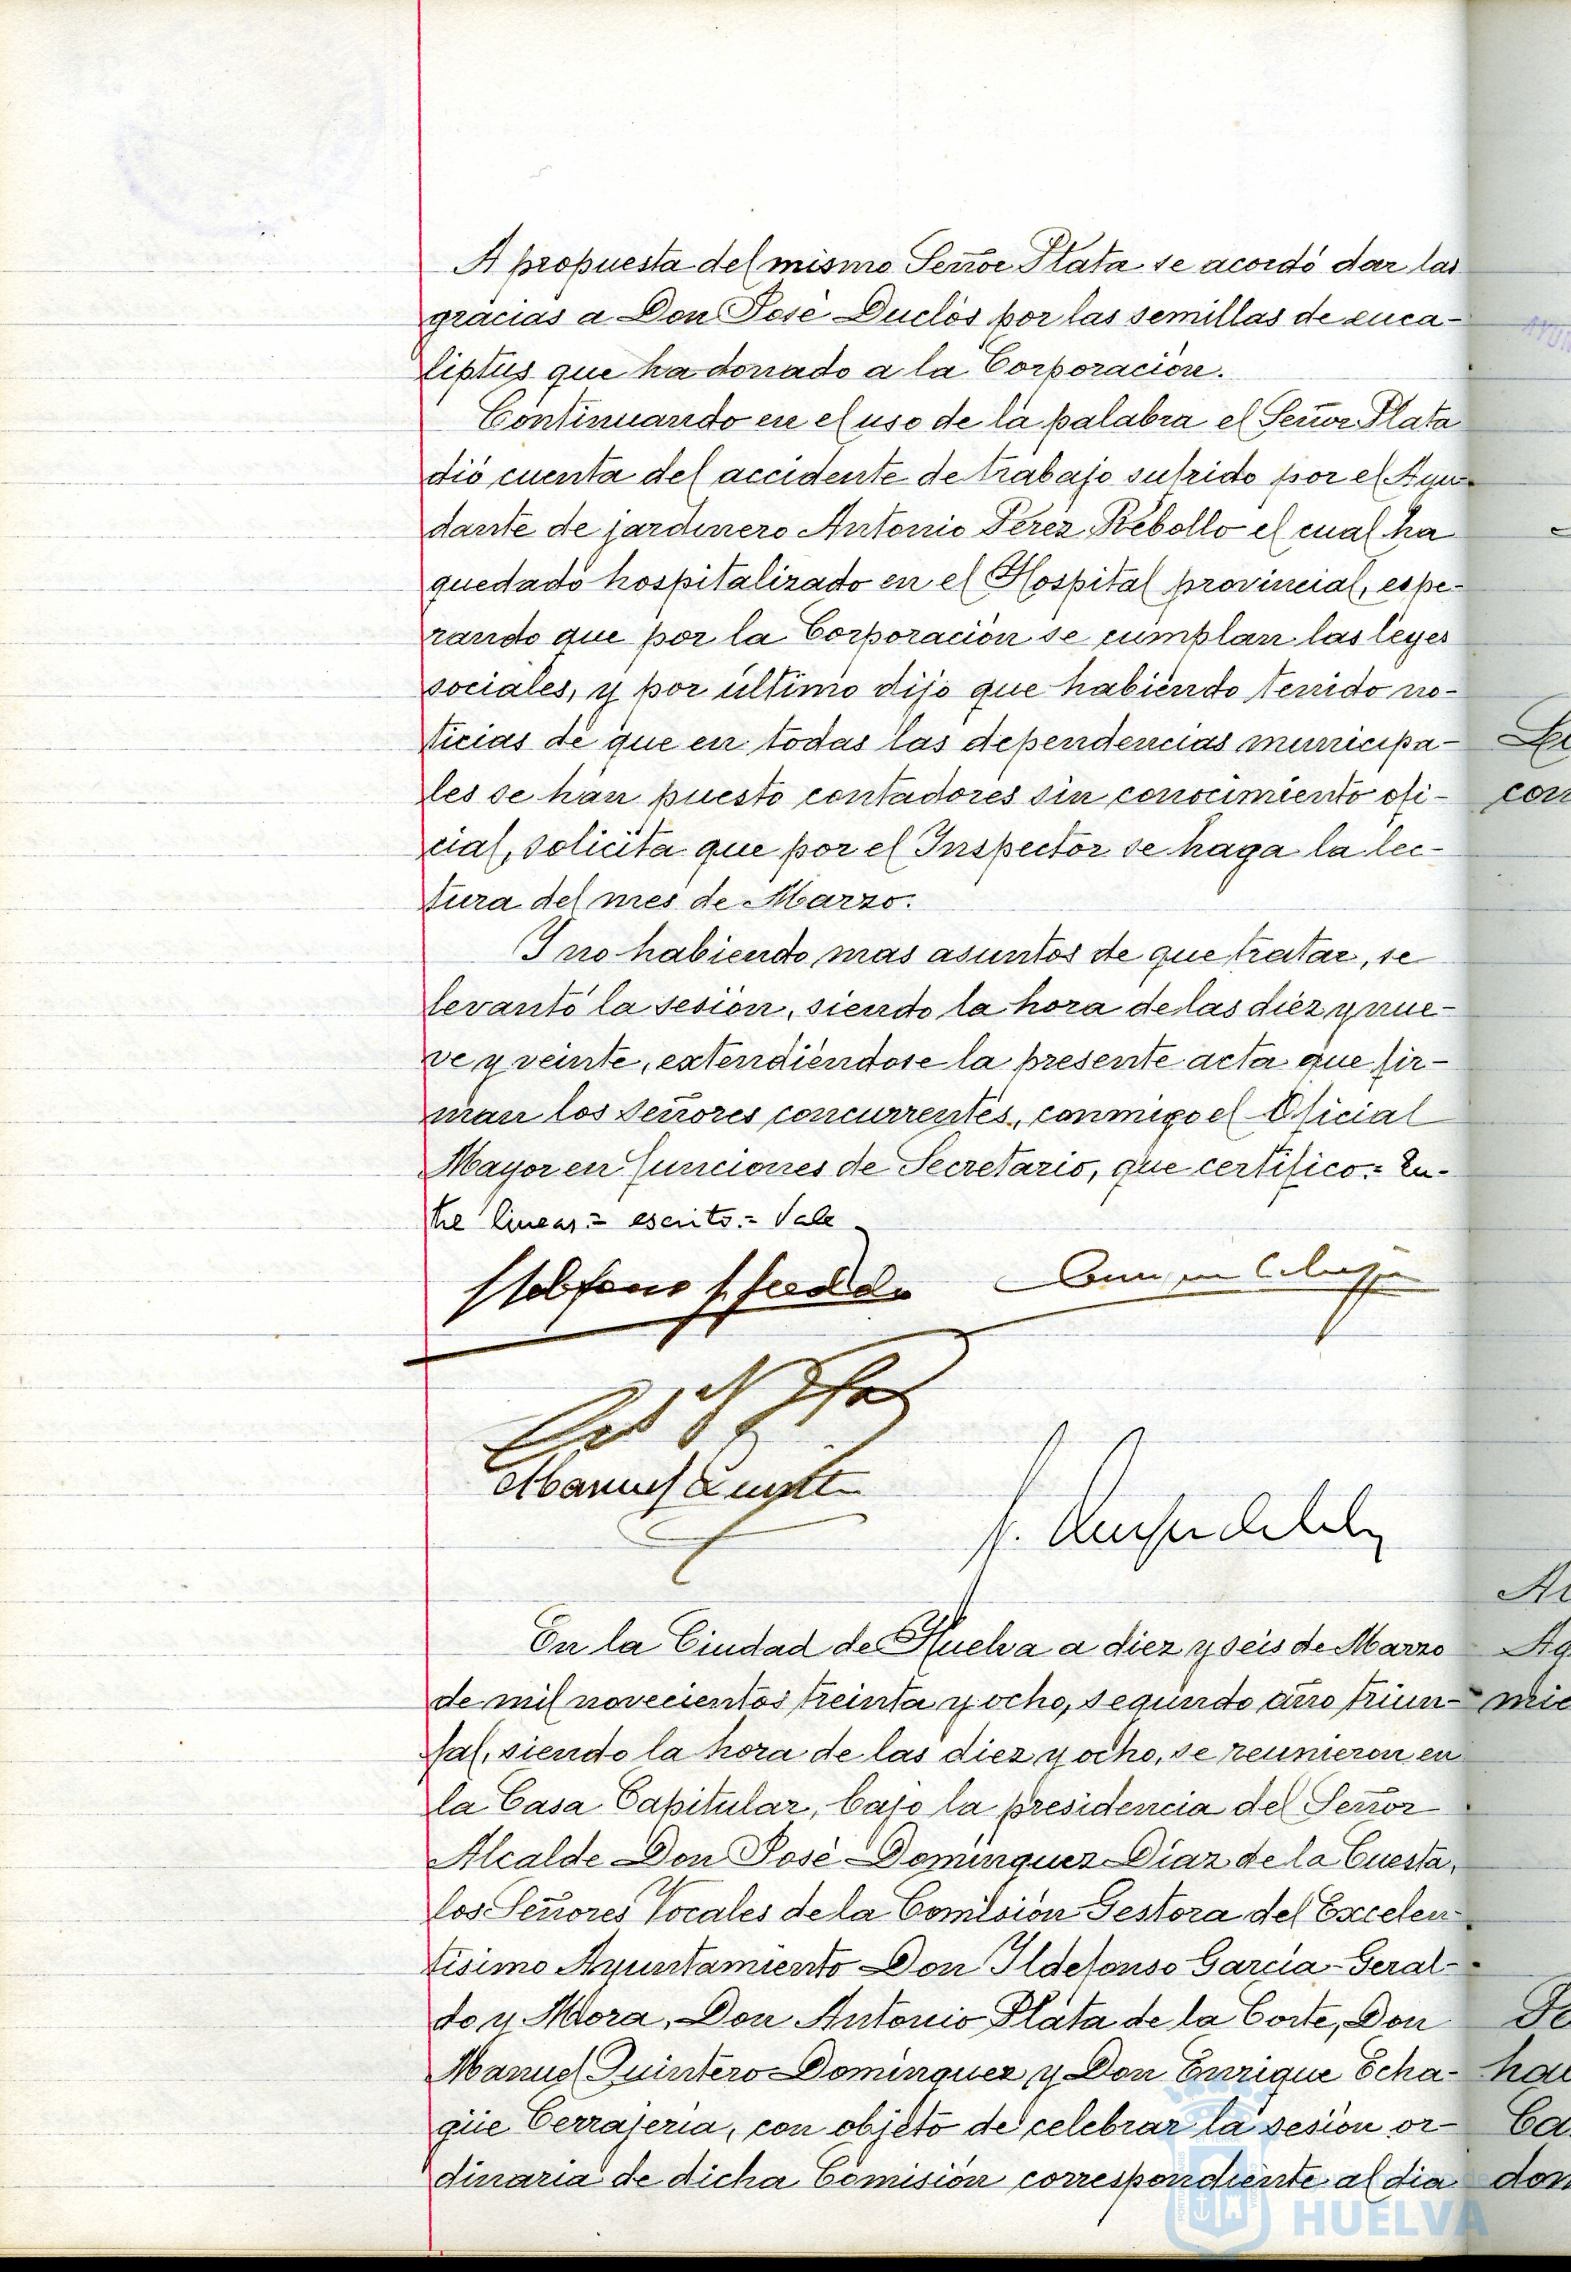 A propuesta del mismo Señor Plata se acordó dar las
gracias a Don José Duclós por las semillas de euca-
liptus que ha donado a la Corporación.
Continuando en el uso de la palabra el Señor Plata
dió cuenta del accidente de trabajo sufrido por el Ayu-
dante de jardinero Antonio Pérez Rebollo el cual ha
quedado hospitalizado en el Hospital provincial, espe-
rando que por la Corporación se cumplan las leyes
sociales, y por último dijo que habiendo tenido no-
ticias de que en todas las dependencias municipa-
les se han puesto contadores sin conocimiento ofi-
cial, solicita que por el Inspector se haga la lec-
tura del mes de Marzo.
Y no habiendo mas asuntos de que tratar, se
levantó la sesión, siendo la hora de las diez y nue-
ve y veinte, extendiéndose la presente acta que fir-
man los Señores concurrentes, conmigo el Oficial
Mayor en funciones de Secretario, que certifico.= En-
tre lineas = escrito.= Vale
Manuel Quintero
En la Ciudad de Huelva a diez y seis de Marzo
de mil novecientos treinta y ocho, segundo año triun-
fal, siendo la hora de las diez y ocho, se reunieron en
la Casa Capitular, bajo la presidencia del Señor
Alcalde Don José Domínguez Díaz de la Cuesta,
los Señores Vocales de la Comisión Gestora del Excelen-
tísimo Ayuntamiento Don Ildefonso García-Geral-
do y Mora, Don Antonio Plata de la Corte, Don
Manuel Quintero Domínguez y Don Enrique Echa-
güe Cerrajería, con objeto de celebrar la sesión or-
dinaria de dicha Comisión correspondiente al dia
HUELVA